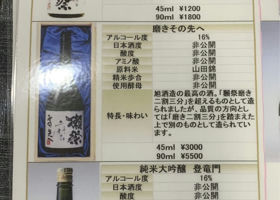 祭
45ml ¥1200
90ml ¥1800
磨きその先へ
アルコール度 16%
日本酒度 非公開
酸度 非公開
アミノ酸 非公開
原料米 山田錦
精米歩合 非公開
使用酵母 非公開
特長・味わい
旭酒造の最高の酒。「獺祭磨き
二割三分」を超えるものとして造
られましたが、品質の方向とし
ては「磨き二割三分」を踏まえた
上で
45ml ¥3000
90ml ¥5500
獺祭
純米大吟醸 登龍門
アルコール度 16%
日本酒度 非公開
酸度 非公開